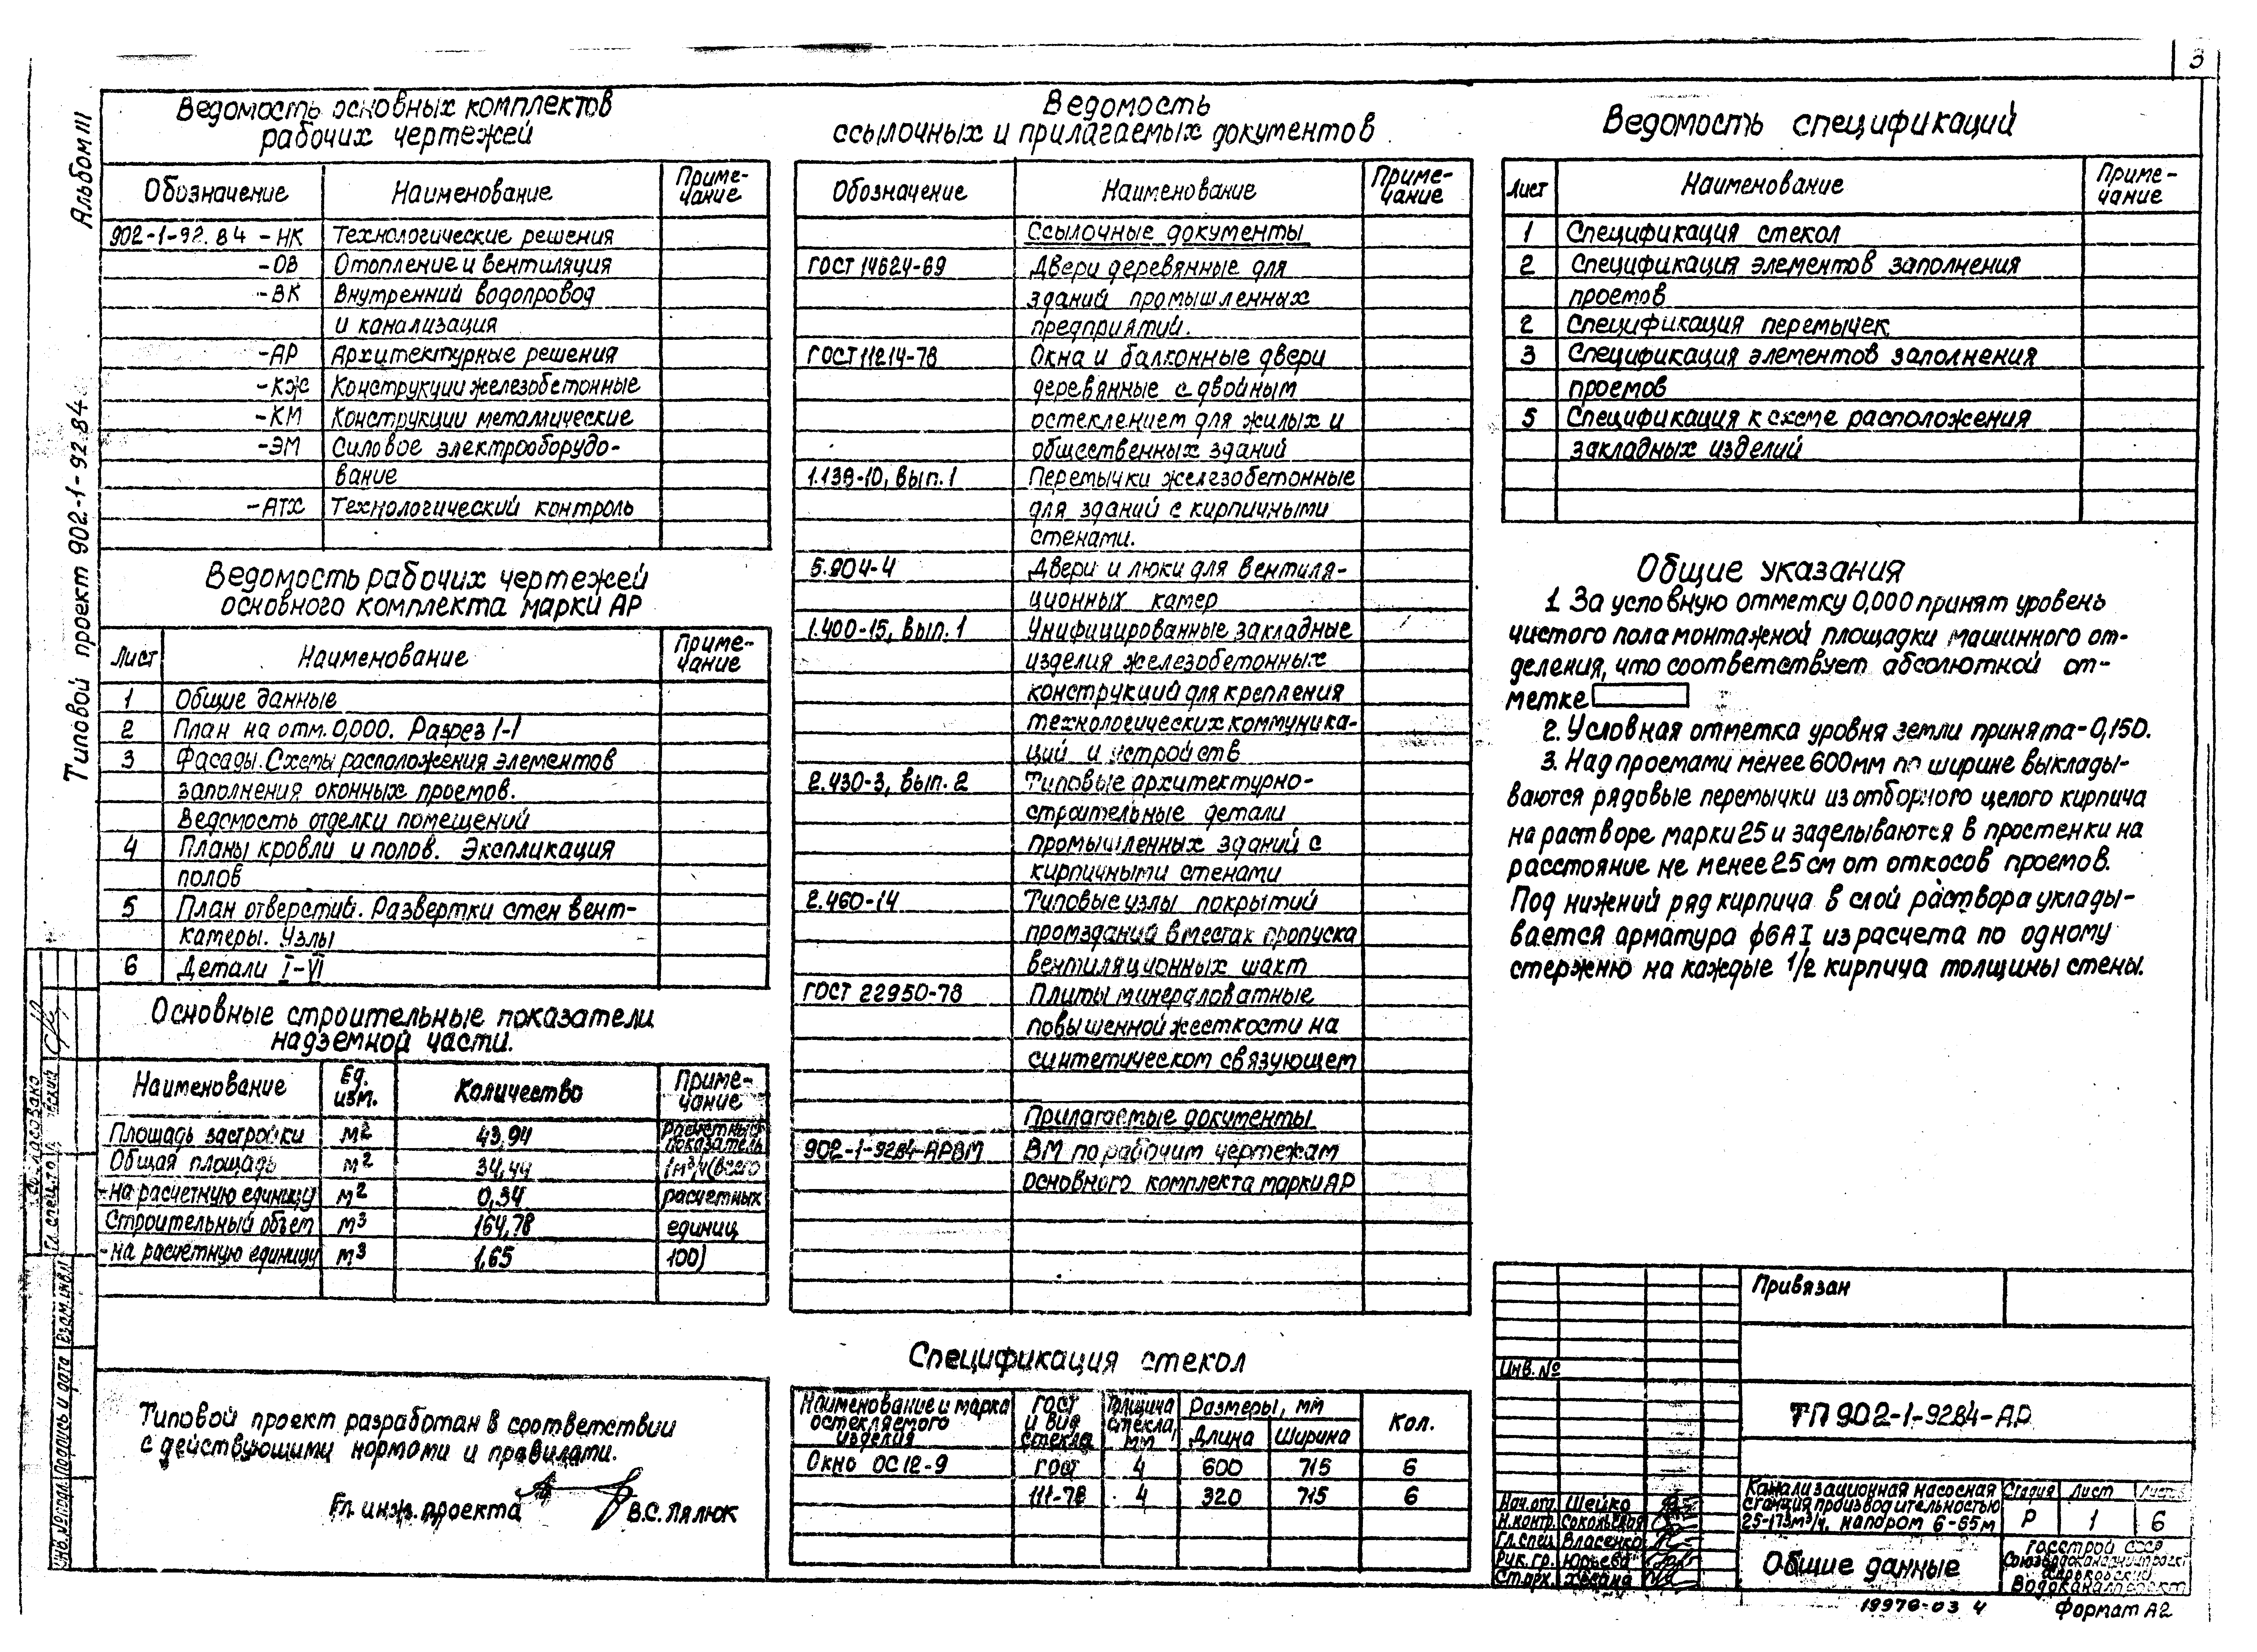 3
Альбом III
Типовой проект 902-1-92.84
Ведомость основных комплектов
рабочих чертежей
Обозначение Наименование Приме-
чание
902-1-92.84-НК Технологические решения
-ОВ Отопление и вентиляция
-ВК Внутренний водопровод
и канализация
-АР Архитектурные решения
-КЖ Конструкции железобетонные
-КМ Конструкции металлические
-ЭМ Силовое электрооборудо-
вание
-АТХ Технологический контроль
Ведомость рабочих чертежей
основного комплекта марки АР
Лист Наименование Приме-
чание
1 Общие данные
2 План на отм. 0,000. Разрез 1-1
3 Фасады. Схемы расположения элементов
заполнения оконных проемов.
Ведомость отделки помещений
4 Планы кровли и полов. Экспликация
полов
5 План отверстий. Развертки стен вент-
камеры. Узлы
6 Детали I-VI
Основные строительные показатели
надземной части.
Наименование Ед.
изм. Количество Приме-
чание
Площадь застройки м2 43,94 Расчетный
показатель
Общая площадь м2 34,44 1м3/ч (всего
-на расчетную единицу м2 0,34 расчетных
Строительный объем м3 164,78 единиц
-на расчетную единицу м3 1,65 100)
Типовой проект разработан в соответствии
с действующими нормами и правилами.
Гл. инж. проекта В.С. Лялюк
Ведомость
ссылочных и прилагаемых документов
Обозначение Наименование Приме-
чание
Ссылочные документы
ГОСТ 14624-69 Двери деревянные для
зданий промышленных
предприятий.
ГОСТ 11214-78 Окна и балконные двери
деревянные с двойным
остеклением для жилых и
общественных зданий
1.139-10, вып. 1 Перемычки железобетонные
для зданий с кирпичными
стенами.
5.904-4 Двери и люки для вентиля-
ционных камер
1.400-15, вып. 1 Унифицированные закладные
изделия железобетонных
конструкций для крепления
технологических коммуника-
ций и устройств
2.430-3, вып. 2 Типовые архитектурно-
строительные детали
промышленных зданий с
кирпичными стенами
2.460-14 Типовые узлы покрытий
промзданий в местах пропуска
вентиляционных шахт
ГОСТ 22950-78 Плиты минераловатные
повышенной жесткости на
синтетическом связующем
Прилагаемые документы
902-1-92.84-АРВМ ВМ по рабочим чертежам
основного комплекта марки АР
Спецификация стекол
Наименование и марка
остекляемого
изделия ГОСТ
и вид
стекла Толщина
стекла,
мм Размеры, мм Кол.
Длина Ширина
Окно ОС12-9 ГОСТ 4 600 715 6
111-78 4 320 715 6
Ведомость спецификаций
Лист Наименование Приме-
чание
1 Спецификация стекол
2 Спецификация элементов заполнения
проемов
2 Спецификация перемычек
3 Спецификация элементов заполнения
проемов
5 Спецификация к схеме расположения
закладных изделий
Общие указания
1. За условную отметку 0,000 принят уровень
чистого пола монтажной площадки машинного от-
деления, что соответствует абсолютной от-
метке
2. Условная отметка уровня земли принята -0,150.
3. Над проемами менее 600мм по ширине выклады-
ваются рядовые перемычки из отборного целого кирпича
на растворе марки 25 и заделываются в простенки на
расстояние не менее 25 см от откосов проемов.
Под нижний ряд кирпича в слой раствора уклады-
вается арматура ф6АI из расчета по одному
стержню на каждые 1/2 кирпича толщины стены.
Привязан
Инв. №
ТП 902-1-92.84-АР
Нач. отд. Шейко
Н. контр. Сокольская
Гл. спец. Власенко
Рук. гр. Юрьева
Ст. арх.
Канализационная насосная
станция производительностью
25-173м3/ч, напором 6-65м
Стадия Лист Листов
Р 1 6
Общие данные
Госстрой СССР
Союзводоканалпроект
Харьковский
Водоканалпроект
19976-03 4
Формат А2
Согласовано
Гл. спец. т.о.
Инв. № подл. Подпись и дата Взам. инв. №